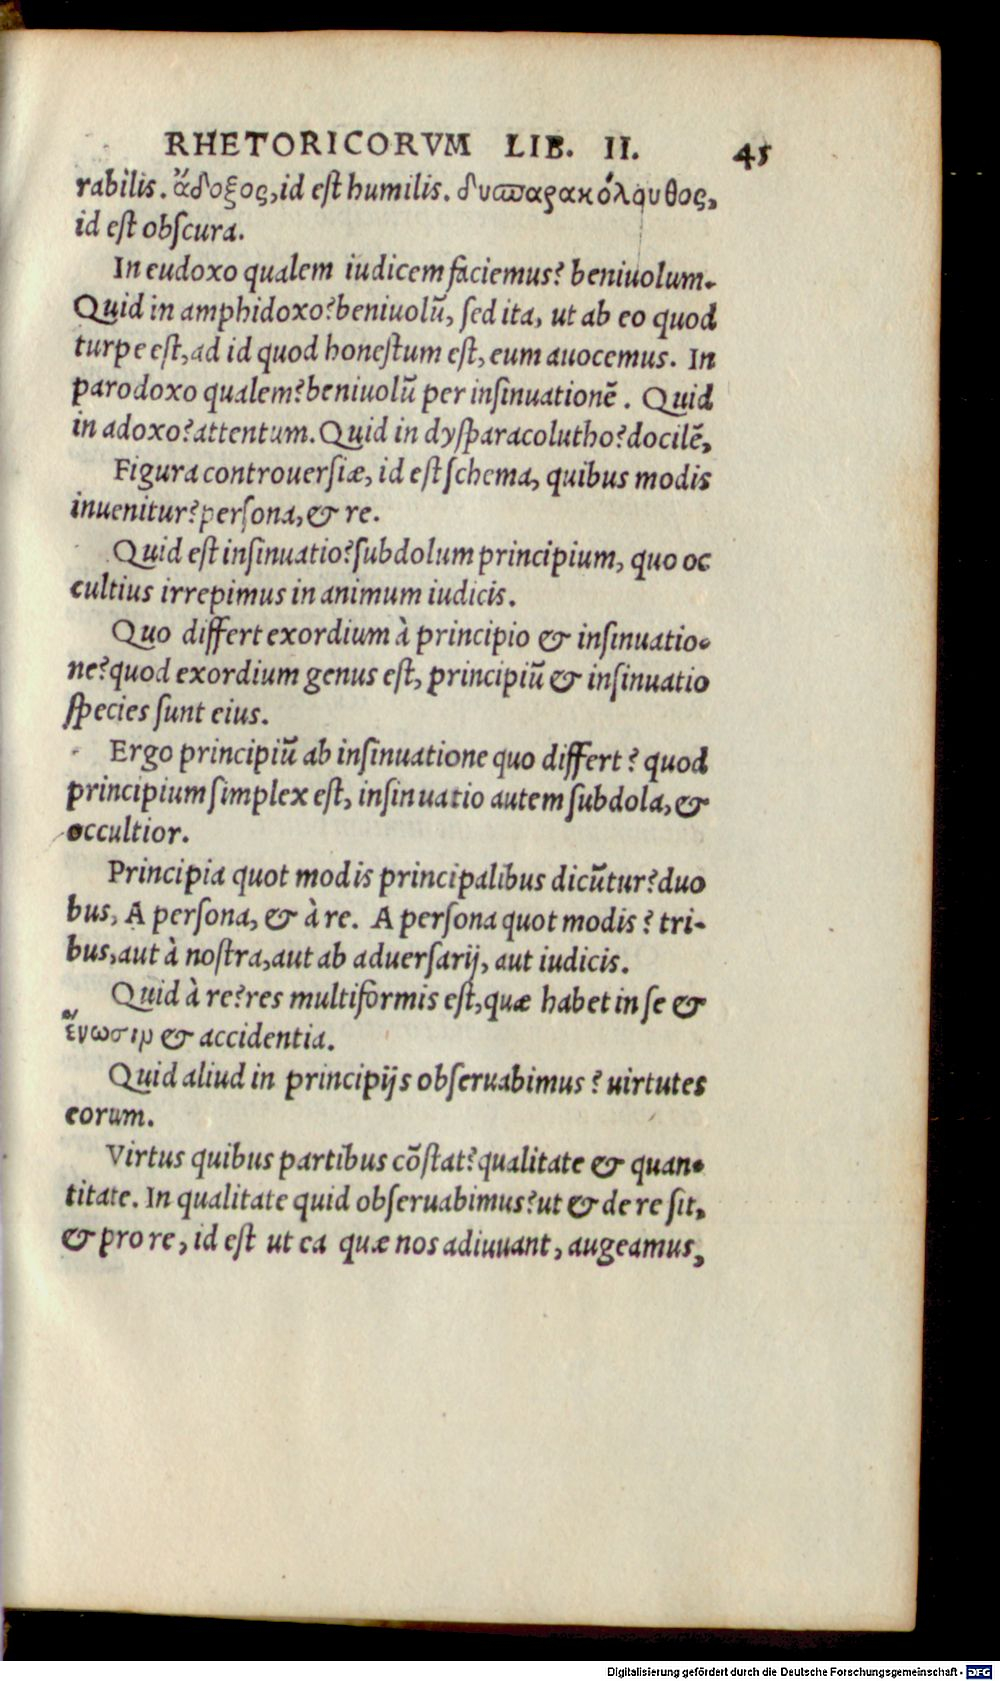 RHETORICORVM LIB. II. 45
rabilis. ἄδοξος, id eſt humilis. δυσπαρακόλουθος,
id eſt obſcura.
In eudoxo qualem iudicem faciemus? beniuolum.
Quid in amphidoxo? beniuolū, ſed ita, ut ab eo quod
turpe eſt, ad id quod honeſtum eſt, eum auocemus. In
parodoxo qualem? beniuolū per inſinuationē. Quid
in adoxo? attentum. Quid in dyſparacolutho? docilē,
Figura controuerſiæ, id eſt ſchema, quibus modis
inuenitur? perſona, & re.
Quid eſt inſinuatio? ſubdolum principium, quo oc
cultius irrepimus in animum iudicis.
Quo differt exordium à principio & inſinuatio-
ne? quod exordium genus eſt, principiū & inſinuatio
ſpecies ſunt eius.
Ergo principiū ab inſinuatione quo differt? quod
principium ſimplex eſt, inſinuatio autem ſubdola, &
occultior.
Principia quot modis principalibus dicūtur? duo
bus, A perſona, & à re. A perſona quot modis? tri-
bus, aut à noſtra, aut ab aduerſarij, aut iudicis.
Quid à re? res multiformis eſt, quæ habet in ſe &
ἕνωσιν & accidentia.
Quid aliud in principijs obſeruabimus? uirtutes
eorum.
Virtus quibus partibus cōſtat? qualitate & quan-
titate. In qualitate quid obſeruabimus? ut & de re ſit,
& pro re, id eſt ut ea quæ nos adiuuant, augeamus,
Digitalisierung gefördert durch die Deutsche Forschungsgemeinschaft - DFG